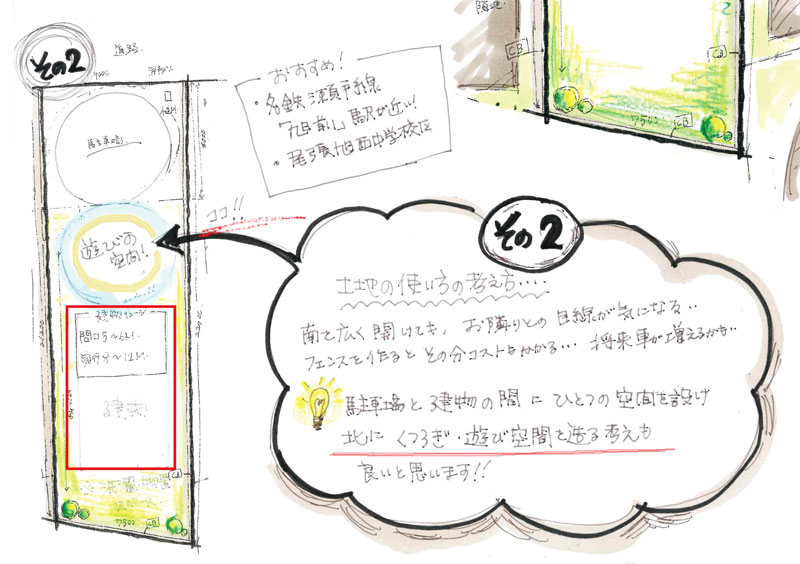 その2
道路
おすすめ!
・名鉄瀬戸線
「旭前」駅が近い!
・尾張旭西中学校区
隣地
CB
CB
7500
CB
駐車場
ココ!!
遊びの
空間!
その2
土地の使い方の考え方・・・・・
南を広く開けても、お隣りとの目線が気になる・・
フェンスを作るとその分コストもかかる・・・ 将来車が増えるかも・・
駐車場と建物の間にひとつの空間を設け
北にくつろぎ・遊び空間を造る考えも
良いと思います!!
建物イメージ
間口5〜6m
建物
CB
7500
CB